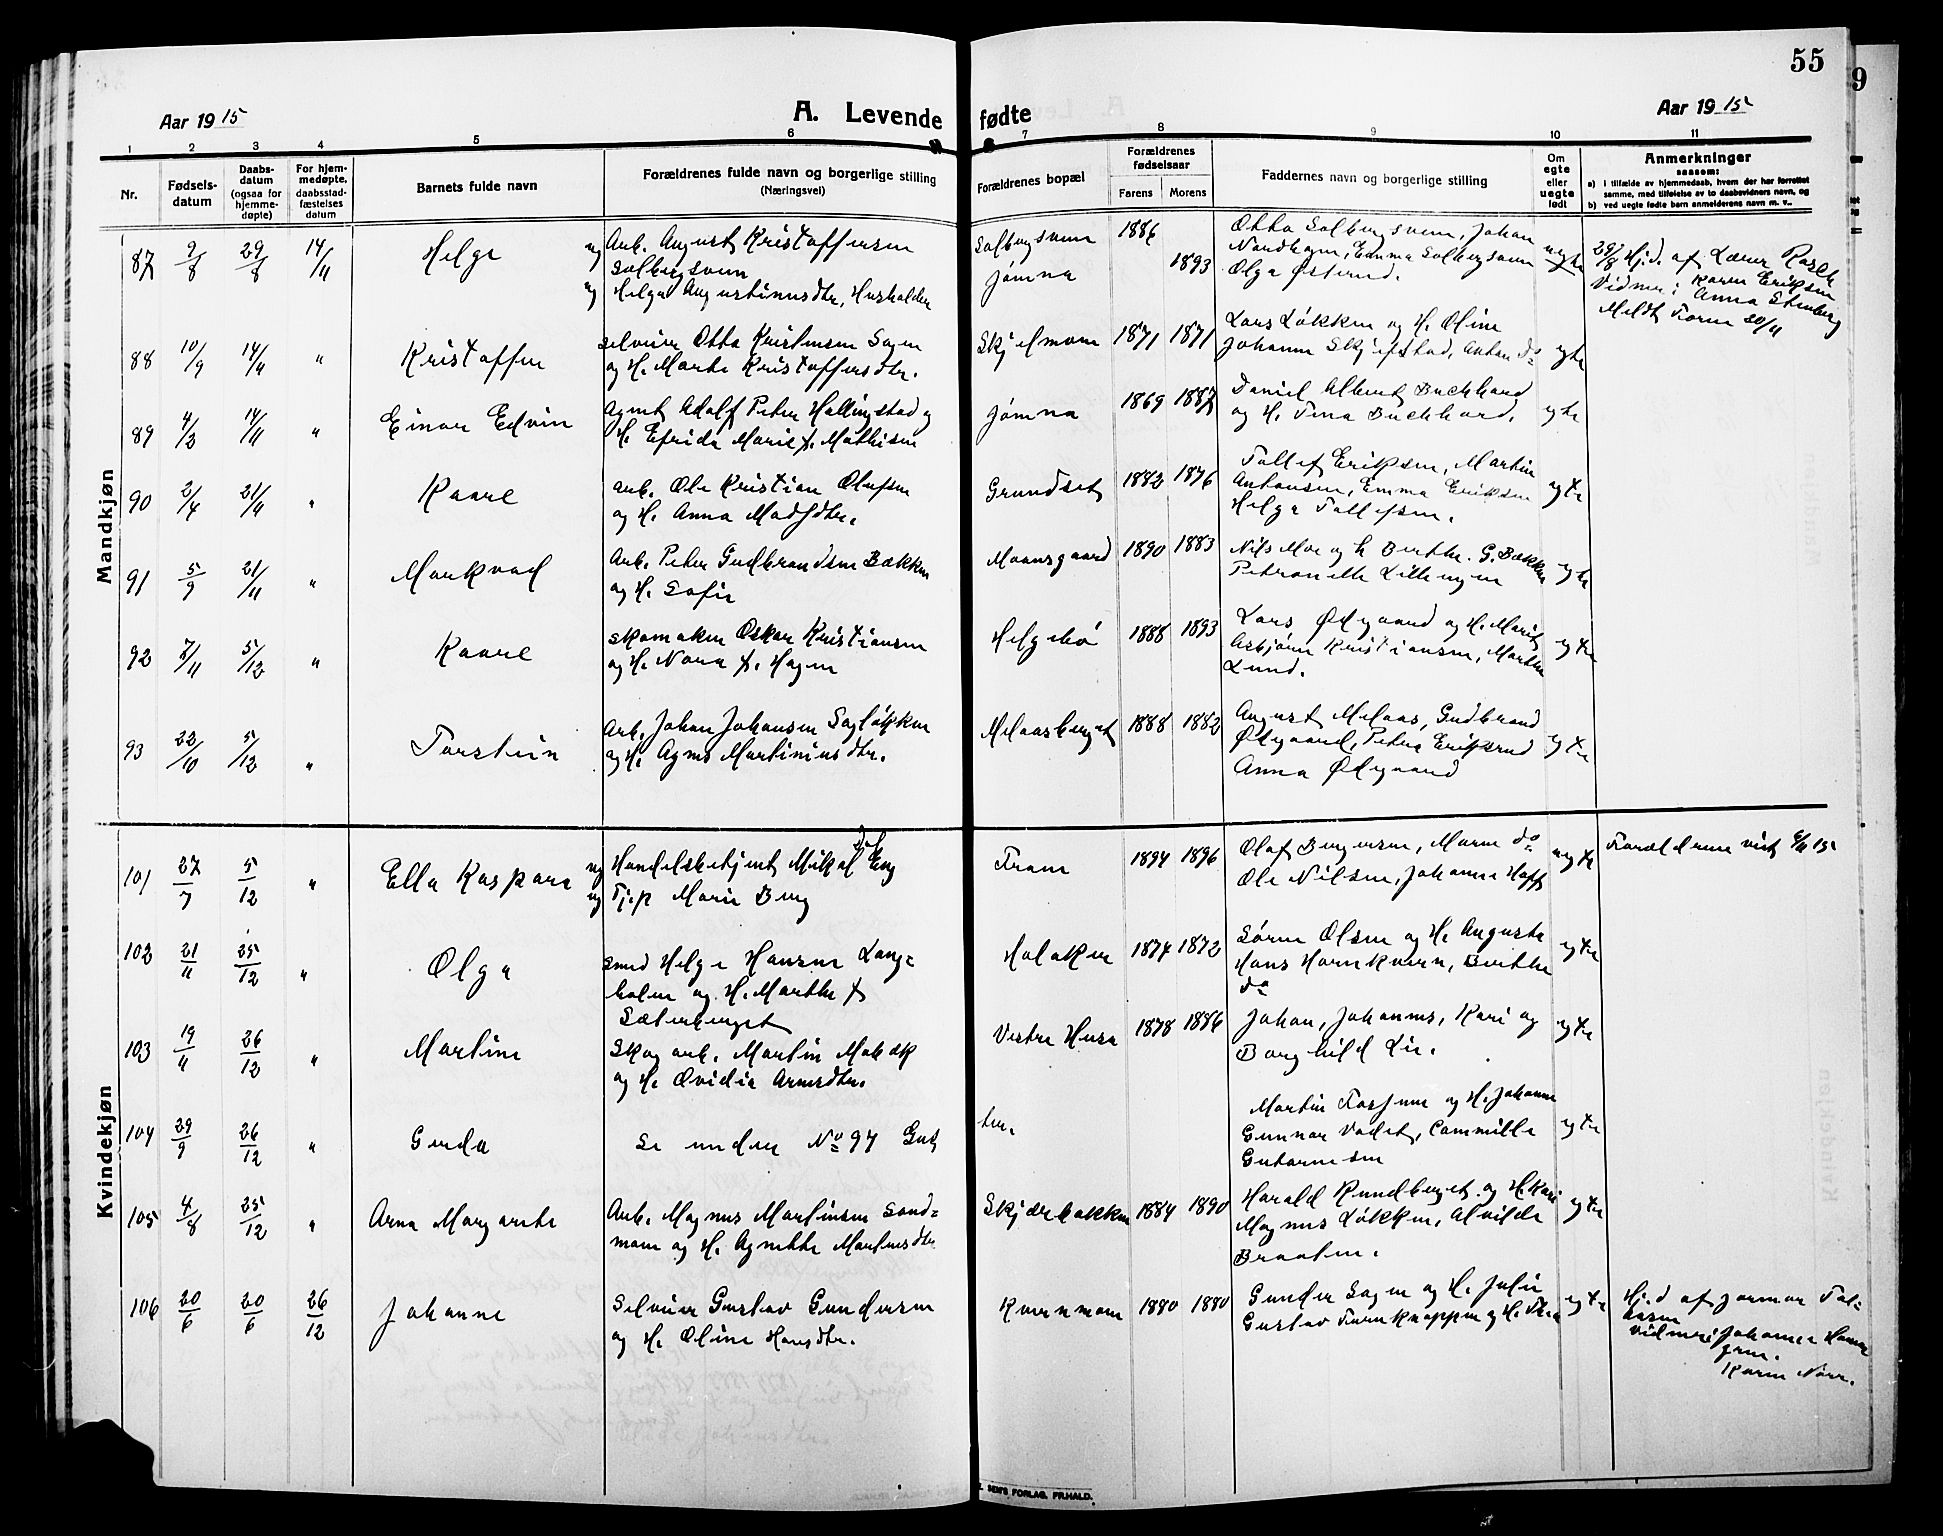 55
9
Aar 1915
A. Levende
fødte
Aar 1915
1 2 3 4 5 6 7 8 9 10 11
Nr.
Fødsels-
datum
Daabs-
datum
(ogsaa for
hjemme-
døpte)
For hjem-
medøpte,
daabsstad-
fæstelses
datum
Barnets fulde navn
Forældrenes fulde navn og borgerlige stilling
(Næringsvei)
Forældrenes bopæl
Forældrenes
fødselsaar
Farens Morens
Faddernes navn og borgerlige stilling
Om
egte
eller
uegte
født
Anmerkninger
saasom:
a) i tilfælde av hjemmedaab, hvem der har forrettet
samme, med tilføielse av to daabsvidners navn, og
b) ved uegte fødte barn anmelderens navn m. v.
Mandkjøn
87 9/8 29/8 14/11 Helge
ug Arb. August Kristoffersen
Solbergsveen
ug Helga Augustinusdtr, Husholder
Solbergsveen
Jømna
1886
1893
Otto Solbergsveen, Johan
Nordhagen, Emma Solbergsveen
Olga Østerud.
uegte
29/8 Hjd. af Lærer Rasch
Vidner: Karen Eriksen
Anna Stenberg
88 10/9 14/11 " Kristoffer
Selveier Otto Kristensen Sagen
og H. Marte Kristoffersdtr.
Skjelmoen 1871 1871
Lars Løkken og H. Oline
Johanne Skjefstad, Anton do
egte
89 4/3 14/11 " Einar Edvin
Agent Adolf Peter Hallingstad og
H. Efrida Marie f. Mathisen
Jømna 1869 1887
Daniel Albert Buchhard
og H. Tina Buchhard.
egte
90 2/4 21/11 " Kaare
Arb. Ole Kristian Olufsen
og H. Anna Madsdtr.
Grundset 1882 1876
Tollef Eriksen, Martin
Antonsen, Emma Eriksen
Helga Tollefsen.
egte
91 5/9 21/11 " Markvad
Arb. Peter Gudbrandsen Bækken
og H. Sofie
Moansgaard 1890 1883
Nils Moe og h Berthe. G. Bækken
Petronelle Lillengen
egte
92 7/11 5/12 " Kaare
Skomaker Oskar Kristiansen
og H. Nora f. Hagen
Helgebø 1888 1893
Lars Ødegaard og H. Marit
Asbjørn Kristiansen, Marthe
Lund.
egte
93 22/10 5/12 " Torstein
Arb. Johan Johansen Sagløkken
og H. Agnes Martiniusdtr.
Melaasberget 1888 1882
August Melaas, Gudbrand
Ødegaard, Petra Eriksrud
Anna Ødegaard
egte
Kvindekjøn
101 27/7 5/12 " Ella Kaspara
ug Handelsbetjent Mikal Eng
ug Tj.p Marie Berg
Fram 1894 1896
Olaf Bergersen, Maren do
Ole Nilsen, Johanne Hoff
uegte
Forældrene viet 6/11 15
102 21/11 25/12 " Olga
Smed Helge Hansen Lang=
holen og H. Marthe f
Sæterberget
Holaker 1874 1872
Søren Olsen og H. Auguste
Hans Hornkvern, Berthe
do
egte
103 19/11 26/12 " Martine
Skogarb. Martin Mobæk
og H. Ovidia Arnesdtr.
Vestre Husa 1878 1886
Johan, Johannes, Kari og
Borghild Lie.
egte
104 29/9 26/12 " Gerda
Se under No 97 Gut
ter.
Martin Fosjuen og H. Johanne
Gunnar Vadet, Cammilla
Gutormsen
egte
105 4/8 25/12 " Arna Margarete
Arb. Magnus Martinsen Sand=
moen og H. Agnethe Martinsdtr
Skjærbakken 1884 1890
Harald Rundberget og H. Kari
Magnus Løkken, Alvilde
Braaten.
egte
106 20/6 20/6 26/12 Johanne
Selveier Gustav Gundersen
og H. Oline Hansdtr.
Kvernmoen 1880 1880
Gunder Sagen og H. Julie
Gustav Turnknappen og H. Thea
egte
Hjd af Jormor Tol=
Vidner: Johanne Haver
Karen Norr.
SEM'S FORLAG. FR.HALD.